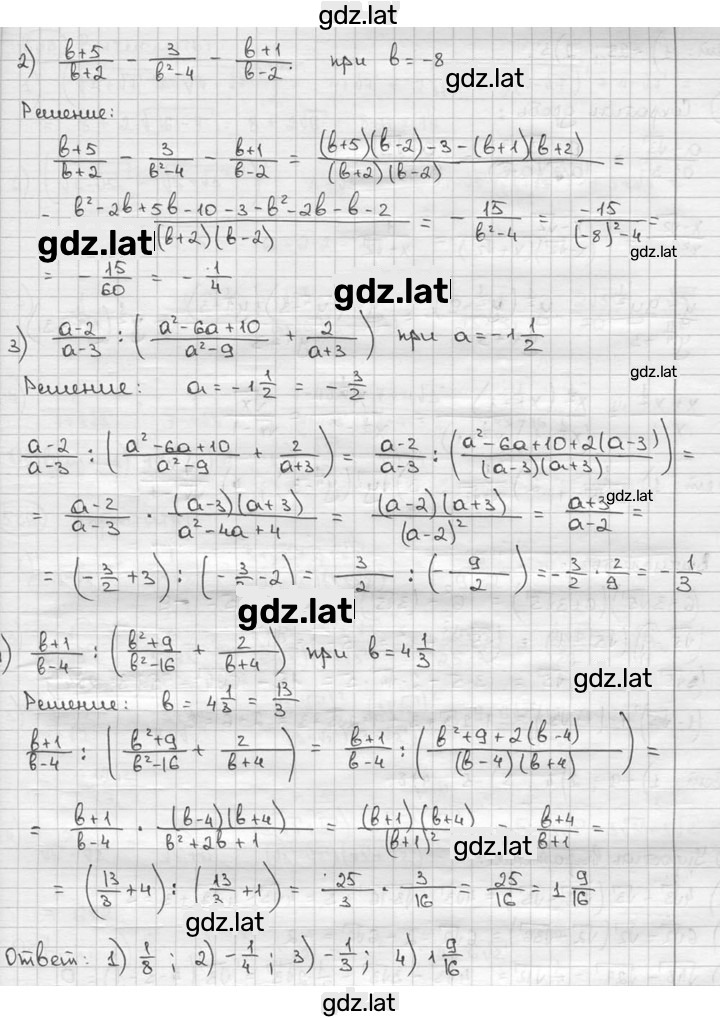 gdz.lat
2) (в+5)/(в+2) - 3/(в²-4) - (в+1)/(в-2). при в = -8
gdz.lat
Решение:
(в+5)/(в+2) - 3/(в²-4) - (в+1)/(в-2) = ((в+5)(в-2)-3-(в+1)(в+2))/((в+2)(в-2)) =
- (в²-2в+5в-10-3-в²-2в-в-2)/((в+2)(в-2)) = - 15/(в²-4) = -15/((-8)²-4) =
gdz.lat
gdz.lat
= - 15/60 = - 1/4
gdz.lat
3) (a-2)/(a-3) : ((a²-6a+10)/(a²-9) + 2/(a+3)) при a = -1 1/2
gdz.lat
Решение: a = -1 1/2 = - 3/2
(a-2)/(a-3) : ((a²-6a+10)/(a²-9) + 2/(a+3)) = (a-2)/(a-3) : ((a²-6a+10+2(a-3))/((a-3)(a+3))) =
gdz.lat
= (a-2)/(a-3) · ((a-3)(a+3))/(a²-4a+4) = ((a-2)(a+3))/(a-2)² = (a+3)/(a-2) =
= (-3/2 + 3) : (-3/ -2) = 3/2 : (- 9/2) = - 3/2 · 2/9 = - 1/3
gdz.lat
) (в+1)/(в-4) : ((в²+9)/(в²-16) + 2/(в+4)) при в = 4 1/3
gdz.lat
Решение: в = 4 1/3 = 13/3
(в+1)/(в-4) : ((в²+9)/(в²-16) + 2/(в+4)) = (в+1)/(в-4) : ((в²+9+2(в-4))/((в-4)(в+4))) =
= (в+1)/(в-4) · ((в-4)(в+4))/(в²+2в+1) = ((в+1)(в+4))/(в+1)² = (в+4)/(в+1) =
gdz.lat
= (13/3 + 4) : (13/3 + 1) = 25/3 · 3/16 = 25/16 = 1 9/16
gdz.lat
Ответ: 1) 1/8 ; 2) - 1/4 ; 3) - 1/3 ; 4) 1 9/16
gdz.lat